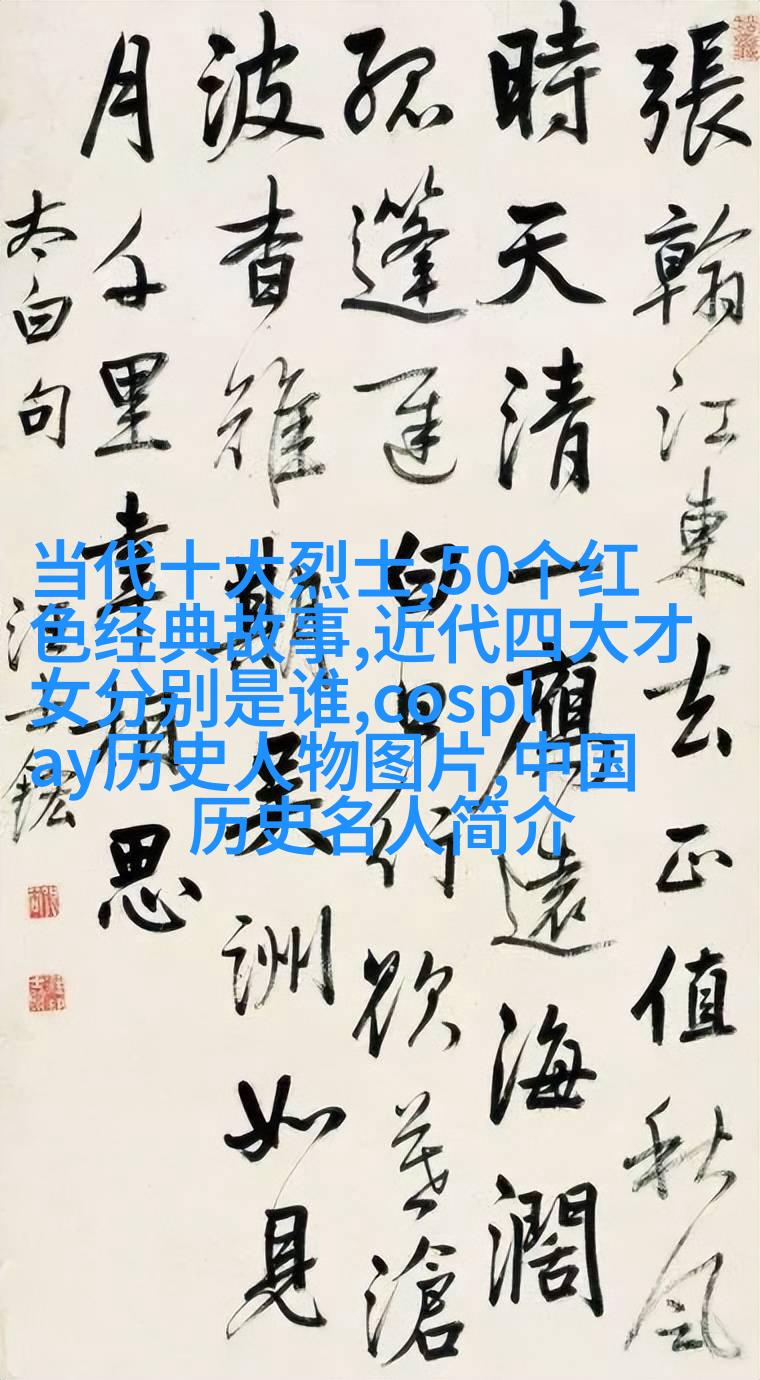 張翰江東去正值秋風
時天清一鴈遠海濶
孤篷遲白日行欲暮滄
波杳難期吴洲如見
月千里幸相思
太白句
汪士鋐
当代十大烈士,50个红
色经典故事,近代四大才
女分别是谁,cospl
ay历史人物图片,中国
历史名人简介